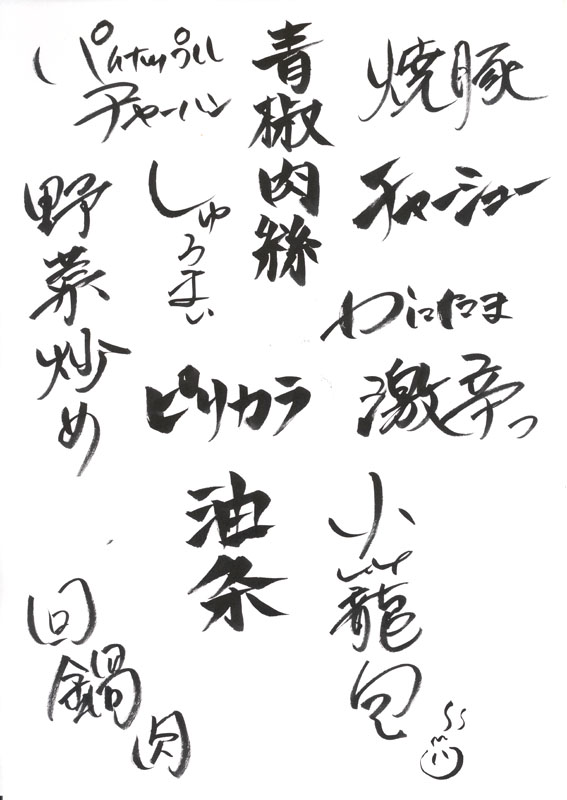 チャーハン
青椒肉絲
焼豚
チャーシュー
野菜炒め
しゅうまい
かにたま
ピリカラ
激辛っ
油条
小籠包
回鍋肉